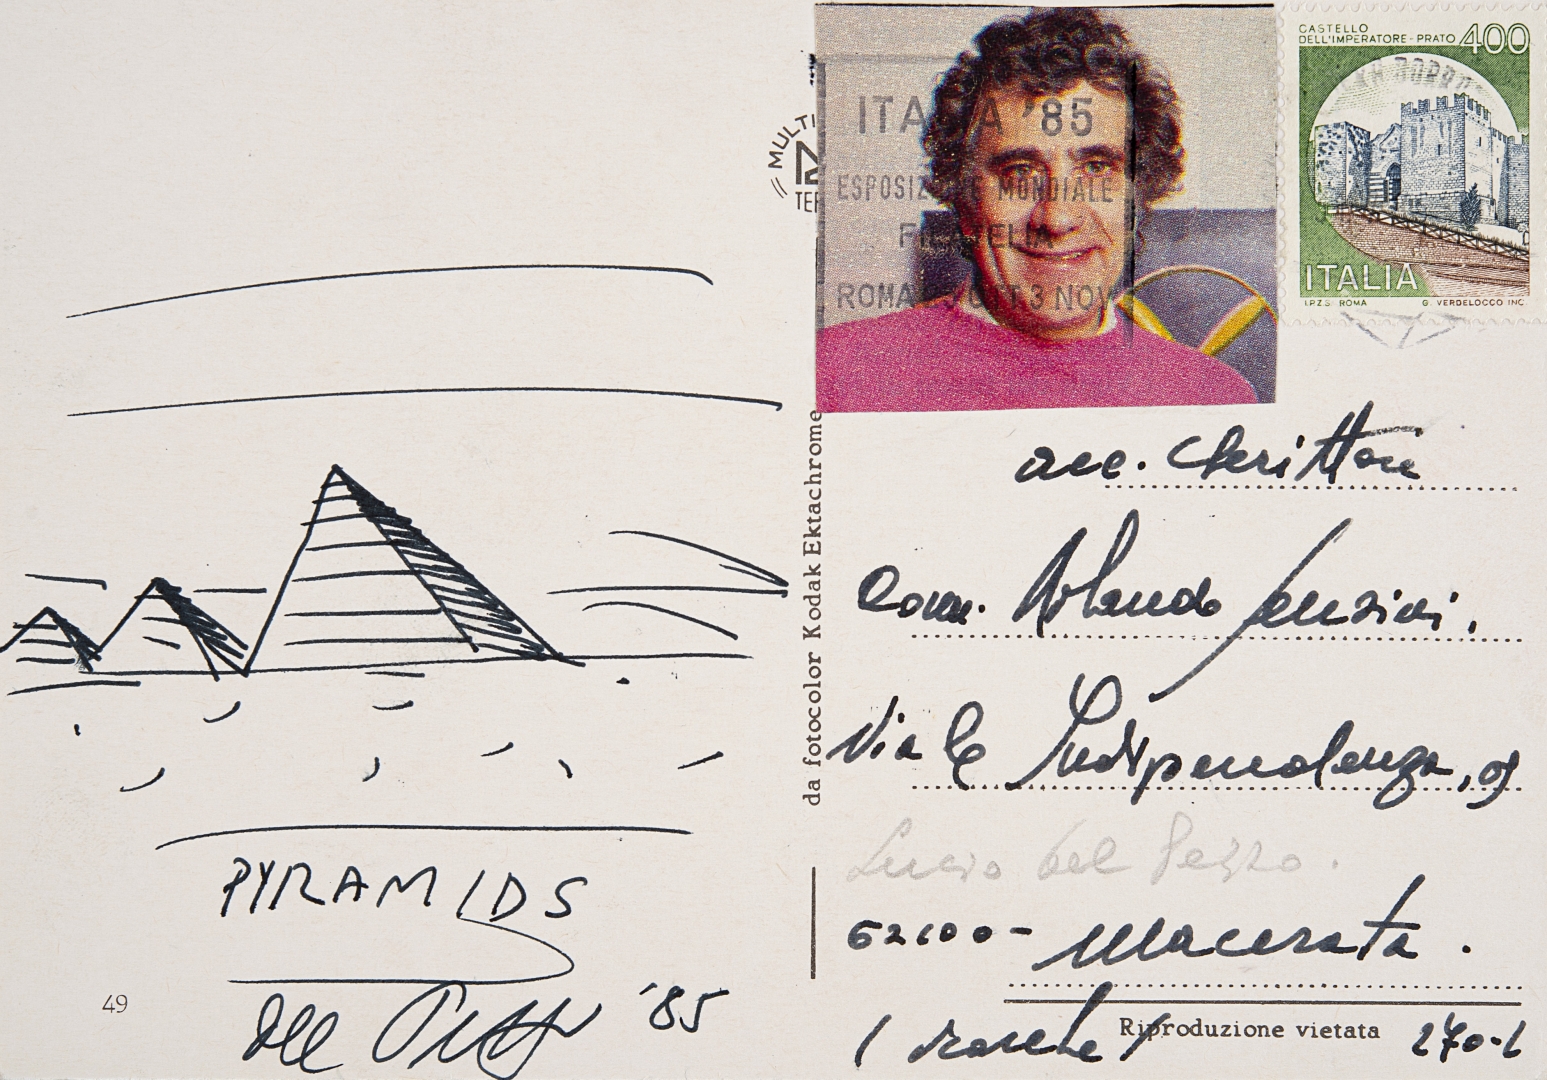 CASTELLO
DELL'IMPERATORE - PRATO 400
ITALIA
I.P.Z.S. ROMA G. VERDELOCCO INC.
MULTI
TER
ITALIA '85
ESPOSIZIONE MONDIALE
FILATELIA
ROMA OTT 3 NOV
da fotocolor Kodak Ektachrome
PYRAMIDS
Del Pezzo '85
49
acc. Scrittori
Viale Indipendenza,
Lucio del Pezzo.
62100 - Macerata.
(Marche)
Riproduzione vietata
270-L